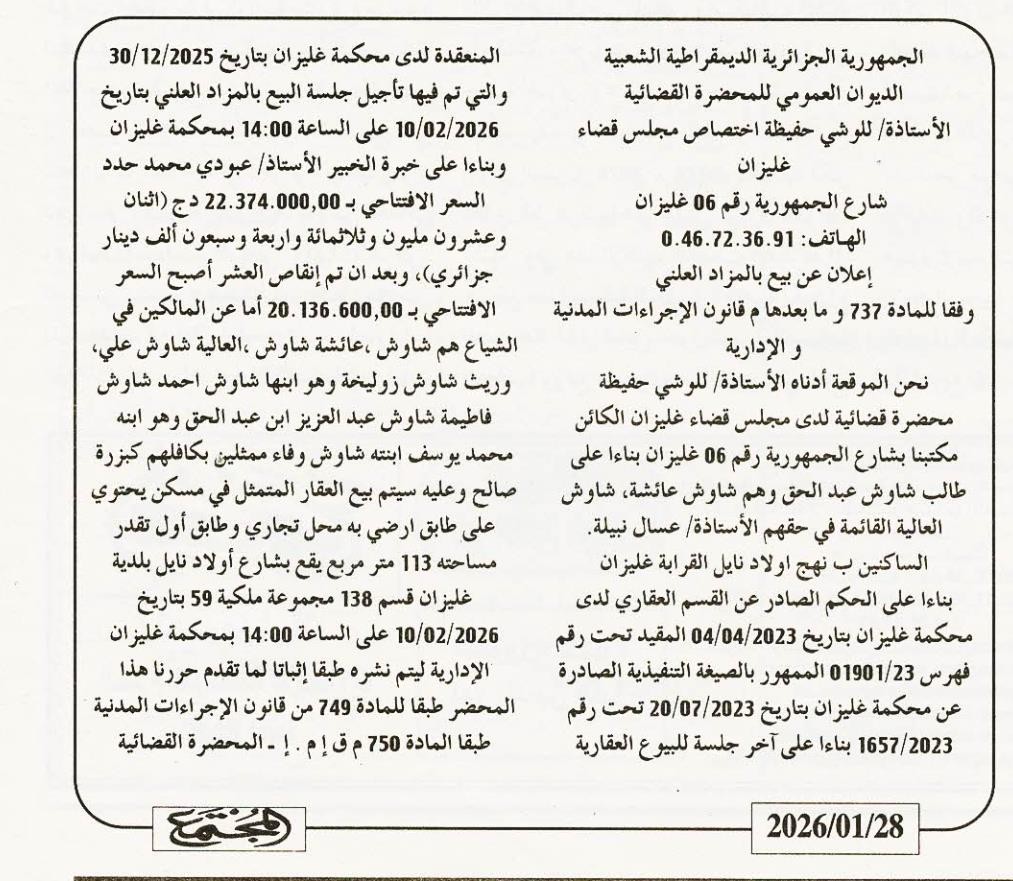 الجمهورية الجزائرية الديمقراطية الشعبية
الديوان العمومي للمحضرة القضائية
الأستاذة/ للوشي حفيظة اختصاص مجلس قضاء
غليزان
شارع الجمهورية رقم 06 غليزان
الهاتف: 0.46.72.36.91
إعلان عن بيع بالمزاد العلني
وفقا للمادة 737 و ما بعدها م قانون الإجراءات المدنية
و الإدارية
نحن الموقعة أدناه الأستاذة/ للوشي حفيظة
محضرة قضائية لدى مجلس قضاء غليزان الكائن
مكتبنا بشارع الجمهورية رقم 06 غليزان بناءا على
طالب شاوش عبد الحق وهم شاوش عائشة، شاوش
العالية القائمة في حقهم الأستاذة/ عسال نبيلة.
الساكنين ب نهج اولاد نايل القرابة غليزان
بناءا على الحكم الصادر عن القسم العقاري لدى
محكمة غليزان بتاريخ 04/04/2023 المقيد تحت رقم
فهرس 01901/23 الممهور بالصيغة التنفيذية الصادرة
عن محكمة غليزان بتاريخ 20/07/2023 تحت رقم
1657/2023 بناءا على آخر جلسة للبيوع العقارية
المنعقدة لدى محكمة غليزان بتاريخ 30/12/2025
والتي تم فيها تأجيل جلسة البيع بالمزاد العلني بتاريخ
10/02/2026 على الساعة 14:00 بمحكمة غليزان
وبناءا على خبرة الخبير الأستاذ/ عبودي محمد حدد
السعر الافتتاحي بـ 22.374.000,00 دج (اثنان
وعشرون مليون وثلاثمائة واربعة وسبعون ألف دينار
جزائري)، وبعد ان تم إنقاص العشر أصبح السعر
الافتتاحي بـ 20.136.600,00 أما عن المالكين في
الشياع هم شاوش ،عائشة شاوش ،العالية شاوش علي،
وريث شاوش زوليخة وهو ابنها شاوش احمد شاوش
فاطيمة شاوش عبد العزيز ابن عبد الحق وهو ابنه
محمد يوسف ابنته شاوش وفاء ممثلين بكافلهم كبزرة
صالح وعليه سيتم بيع العقار المتمثل في مسكن يحتوي
على طابق ارضي به محل تجاري وطابق أول تقدر
مساحته 113 متر مربع يقع بشارع أولاد نايل بلدية
غليزان قسم 138 مجموعة ملكية 59 بتاريخ
10/02/2026 على الساعة 14:00 بمحكمة غليزان
الإدارية ليتم نشره طبقا إثباتا لما تقدم حررنا هذا
المحضر طبقا للمادة 749 من قانون الإجراءات المدنية
طبقا المادة 750 م ق إ م . إ ـ المحضرة القضائية
2026/01/28
المجتمع